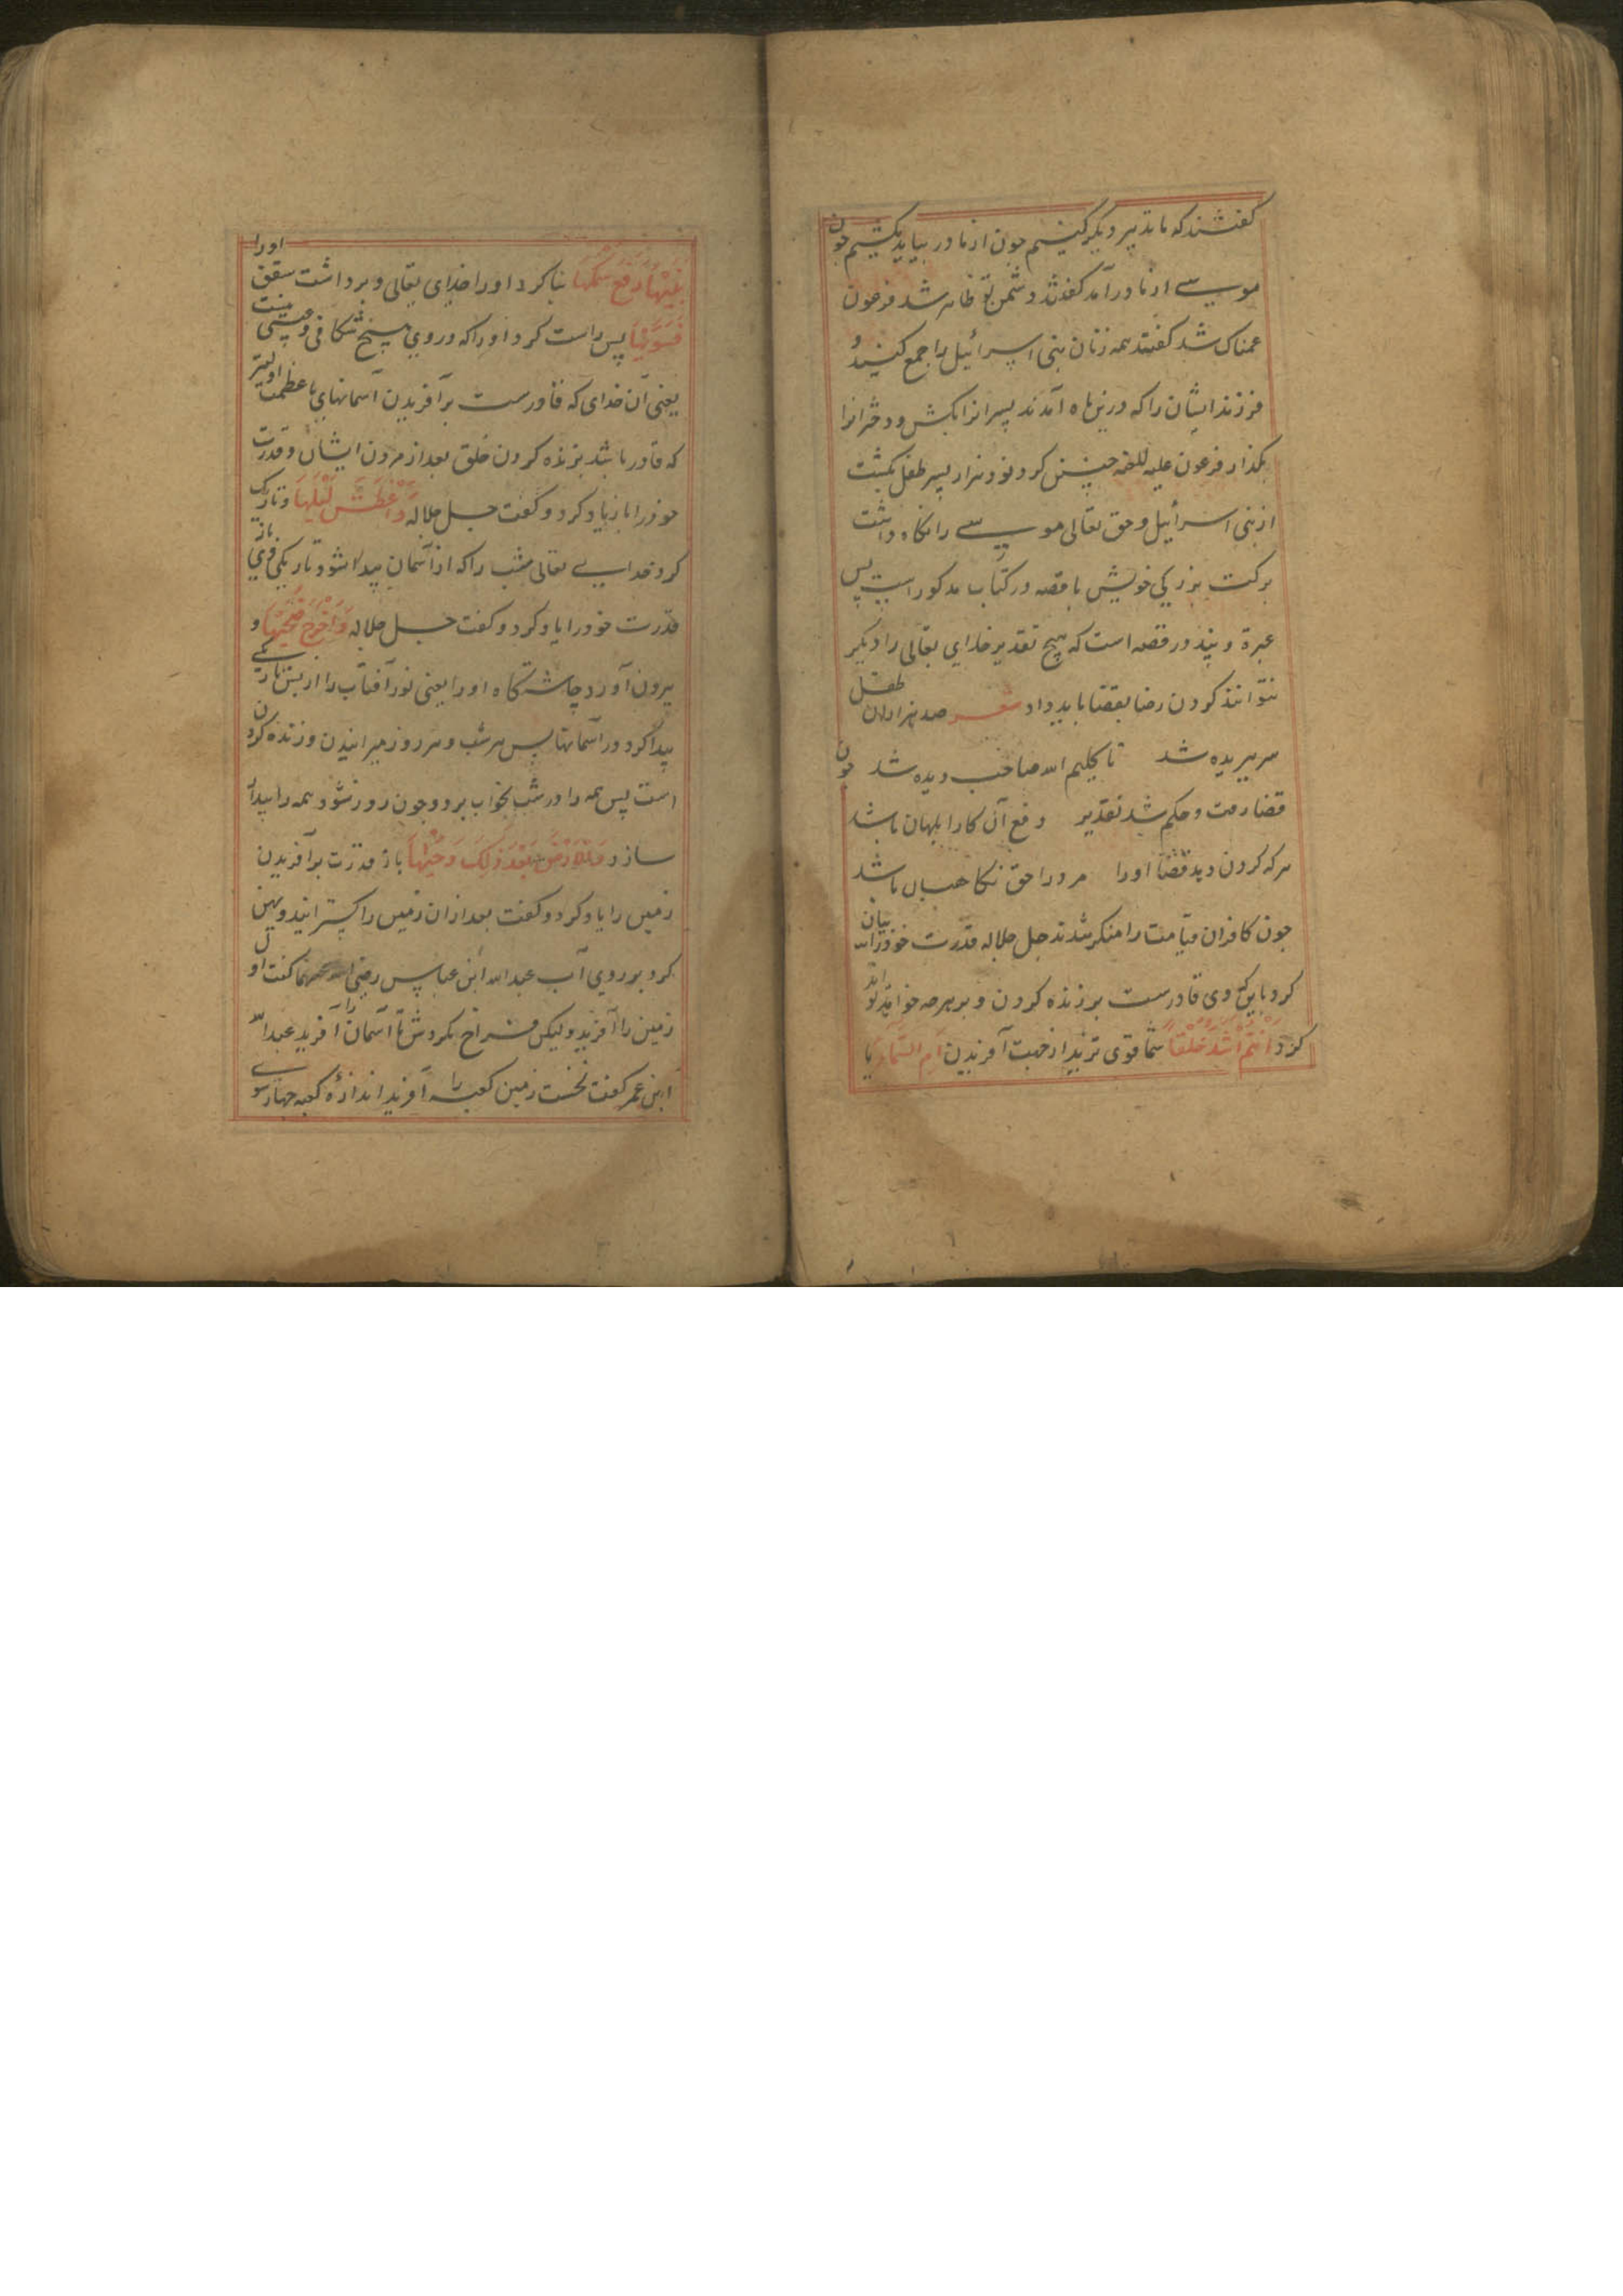 کفتند که ما تدبیر دیکر کنیم جون از مادر بیاید بکشیم جون
موسی از مادر آمد کفتند دشمن تو ظاهر شد فرعون
غمناک شد کفتند همه زنان بنی اسرائیل را جمع کنید و
فرزند ایشان را که درین ماه آمدند پسرانرا بکش و دخترانرا
بکذار فرعون علیه اللعنه چنین کرد نود هزار پسر طفل بکشت
از بنی اسرائیل و حق تعالی موسی را نکاه داشت
ببرکت بزرکی خویش با قصه در کتاب مذکور است پس
عبرة و پند در قصه است که هیچ تقدیر خدای تعالی را دیکر
نتوانند کردن رضا بقضا باید داد شعر صد هزاران طفل
سر بریده شد تا کلیم الله صاحب دیده شد جون
قضا رفت و حکم شد تقدیر دفع آن کار ابلهان باشد
هرکه کردن دید قضا او را مرورا حق نکاهبان باشد
جون کافران قیامت را منکر شدند جل جلاله قدرت خود را بیان
کرد باین که وی قادرست بر زنده کردن و بر هرچه خواهد
کرد ءَاَنْتُمْ اَشَدُّ خَلْقًا شما قوی ترید از جهت آفریدن اَمِ السَّمَاءُ یا
بَنٰیهَا رَفَعَ سَمْکَهَا بنا کرد او را خدای تعالی و برداشت سقف او را
فَسَوّٰیهَا پس راست کرد او را که در وی هیچ شکافی و پستی نیست
یعنی آن خدای که قادرست بر آفریدن آسمانهای با عظمت اولیتر
که قادر باشد بزنده کردن خلق بعد از مردن ایشان و قدرت
خود را باز یاد کرد و کفت جل جلاله وَاَغْطَشَ لَیْلَهَا و تاریک
کرد خدای تعالی شب را که از آسمان پیدا شود تاریکی وی باز
قدرت خود را یاد کرد و کفت جل جلاله وَاَخْرَجَ ضُحٰیهَا و
بیرون آورد چاشتکاه او را یعنی نور آفتاب را از پس تاریکی
پیدا کرد در آسمانها پس هر شب و هر روز میرانیدن و زنده کردن
است پس همه را در شب بخواب برد و جون روز شود همه را بیدار
سازد وَالْاَرْضَ بَعْدَ ذٰلِکَ دَحٰیهَا باز قدرت بر آفریدن
زمین را یاد کرد و کفت بعد ازان زمین را بکسترانید و پهن
کرد بر روی آب عبدالله ابن عباس رضی الله عنهما کفت اول
زمین را آفرید ولیکن فراخ نکردش تا آسمان را آفرید عبدالله
ابن عمر کفت نخست زمین کعبه را آفرید اندازه کعبه چهار سوی